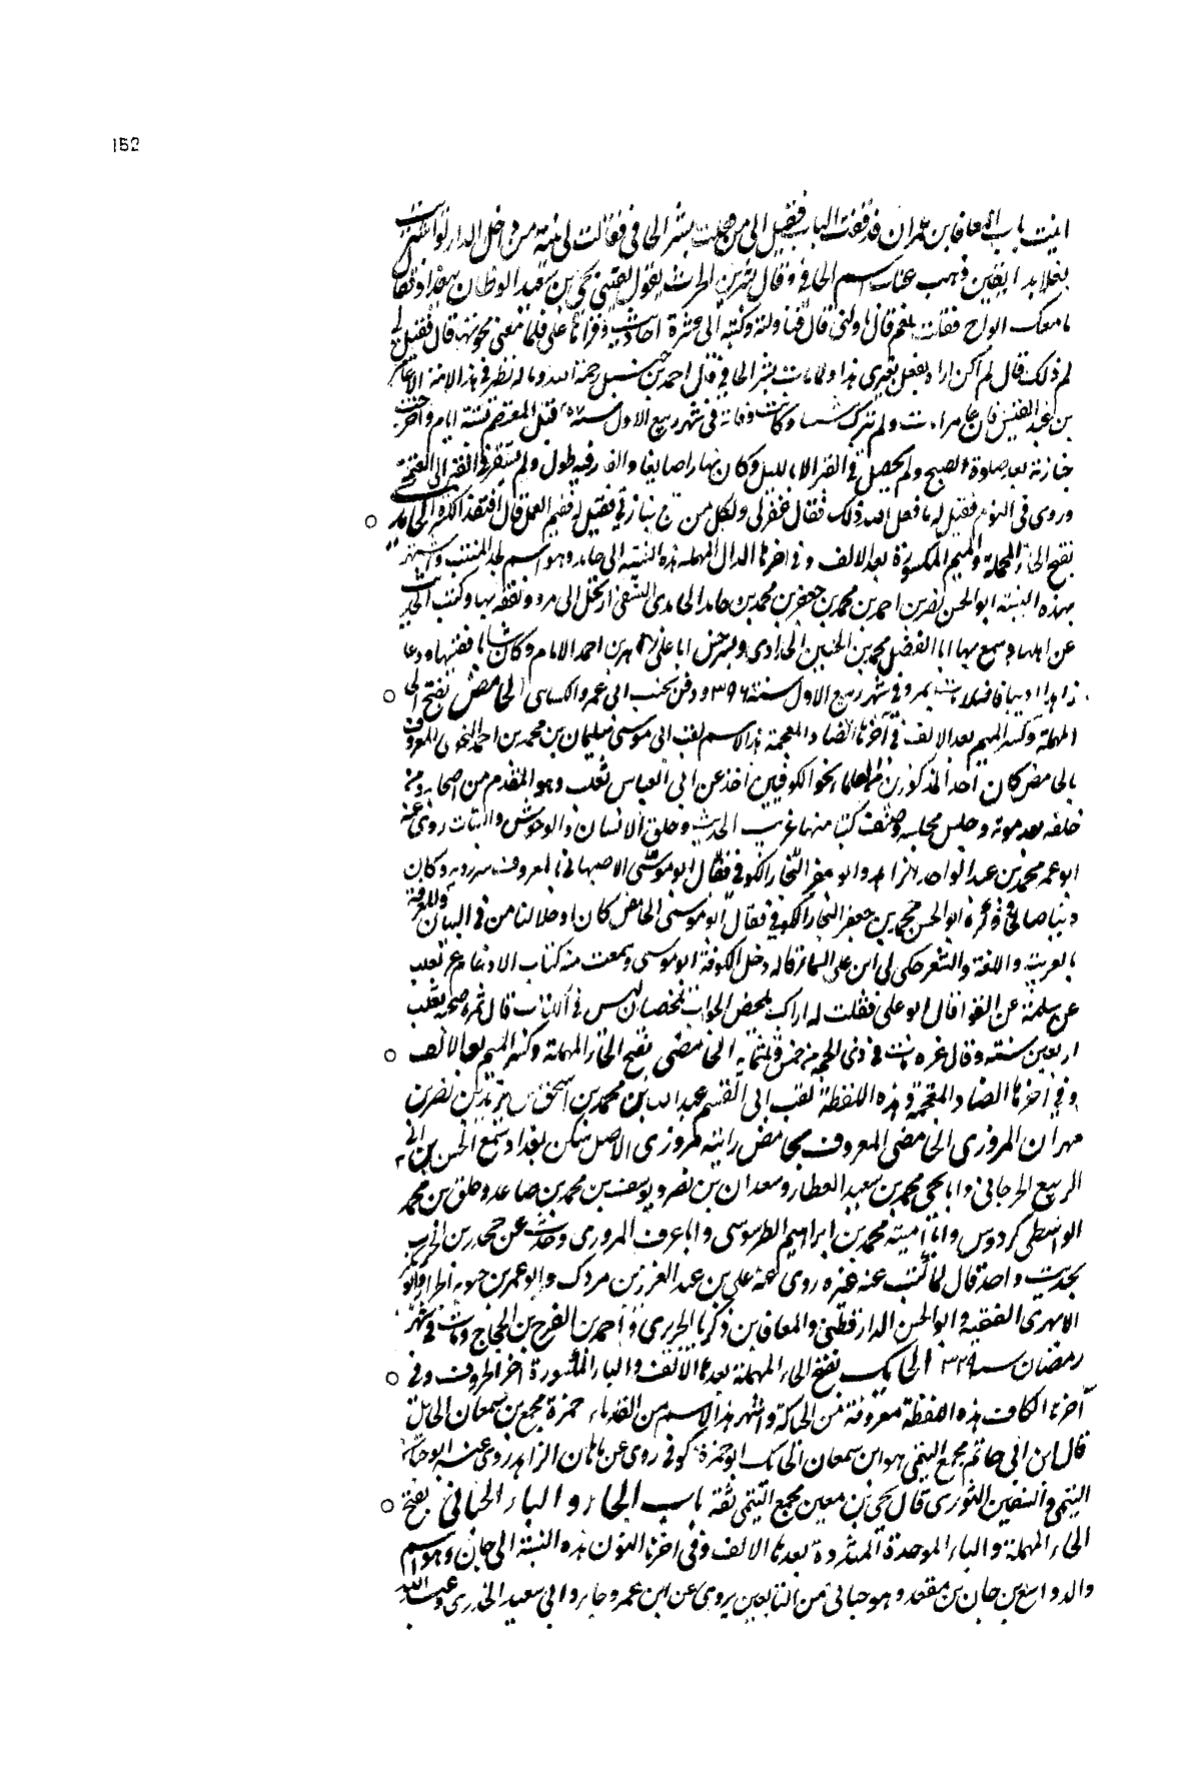 152
اتيت باب المعافا بن عمران فدققت الباب فقيل لي من فقلت بشر الحافي فقالت لي بنية من داخل الدار لو اشتريت
نعلا بدانقين ذهب عنك اسم الحافي وقال بشر بن الحرث يقول لقيني يحيى بن سعيد القطان ببغداد فقال
معك الواح فقلت نعم قال ناولني قال فناولته وكتب الى عشرة احاديث وقراها على فلما مضى محوتها قال فقيل له
لم ذلك قال لم اكن اراد يفعل بغيري هذا ولما مات بشر الحافي قال احمد بن حنبل رحمه الله وماله نظير في هذا الامة الا عامر
بن عبد القيس فان عامرا مات ولم يترك شيئا وكانت وفاته في شهر ربيع الاول سنة قبل المعتصم بستة ايام واخرجت
جنازته بعد صلوة الصبح ولم يحصل في القبر الا بالليل وكان نهارا صايفا والنهار فيه طول ولم يستقر في القبر الى العتمة
وروي في النوم فقيل له ما فعل الله ذلك فقال غفر لي ولكل من تبع جنازتي فقيل له ففيم العمل قال افتقد الكسرة الحامدي
بفتح الحاء المهملة والميم المكسورة بعد الالف وفي اخرها الدال المهملة هذه النسبة الى حامد وهو اسم لجد المنتسب واشتهر
بهذه النسبة ابو الحسن نصر بن احمد بن محمد بن جعفر بن محمد بن حامد الحامدي النسفي ارتحل الى مرو وتفقه بها وكتب الحديث
عن اهلها وسمع بها ابا الفضل محمد بن الحسين الحدادي وبسرخس ابا علي زاهر بن احمد الامام وكان شابا فقيها ورعا
زاهدا اديبا فاضلا مات بمرو في شهر ربيع الاول سنة ٣٩٦ ودفن بجنب ابي عمرو الكسائي الحامض بفتح الحاء
المهملة وكسر الميم بعد الالف في آخرها الضاد المعجمة هذا الاسم لقب ابي موسى سليمان بن محمد بن احمد النحوي المعروف
بالحامض كان احد المذكورين من العلماء بنحو الكوفيين اخذ عن ابي العباس ثعلب وهو المقدم من اصحابه ومن
خلفه بعد موته وجلس مجلسه وصنف كتبا منها غريب الحديث وخلق الانسان والوحوش والنبات روى عنه
ابو عمر محمد بن عبد الواحد الزاهد وابو جعفر النجار الكوفي فقال ابو موسى الاصبهاني المعروف وكان
دينا صالحا ابو الحسن محمد بن جعفر النجار الكوفي فقال ابو موسى الحامض كان اوحد الناس في البيان والمعرفة
بالعربية واللغة والشعر حكى لي ابو علي النقار قال دخل الكوفة ابو موسى وسمعت منه كتاب الادغام عن ثعلب
عن سلمة عن الفرا قال ابو علي فقلت له اراك تلخص الجواب تلخيصا ليس في الكتاب قال ثمرة صحبة ثعلب
اربعين سنة وقال غيره مات في ذي الحجة من خمس وثلثمائة الحامضي بفتح الحاء المهملة وكسر الميم بعد الالف
وفي اخرها الضاد المعجمة هذه اللفظة لقب ابي القسم عبد الله بن محمد بن اسحق بن يزيد بن نصر بن
مهران المروزي الحامضي المعروف بحامض راسه مروزي الاصل سكن بغداد سمع الحسن بن ابي
الربيع الجرجاني وابا يحيى محمد بن سعيد العطار وسعدان بن نصر ويوسف بن محمد بن صاعد وخلف بن محمد
الواسطي كردوس وابا امية محمد بن ابراهيم الطرسوسي وابا عوف المروزي وحدث عن جحدر بن الحرث
بحديث واحد قال لم اكتب عنه غيره روى عنه علي بن عبد العزيز بن مردك وابو عمر بن حيويه الخزاز وابو بكر
الابهري الفقيه وابو الحسن الدارقطني والمعافا بن زكريا الجريري واحمد بن الفرج بن الحجاج ومات في شهر
رمضان سنة ٣٢٩ الحايك بفتح الحاء المهملة بعدها الالف والياء المكسورة آخر الحروف وفي
آخرها الكاف هذه اللفظة معروفة من الحياكة واشتهر بهذا الاسم من القدماء حمزة مجمع بن سمعان الحايك
قال ابن ابي حاتم مجمع التيمي هو ابن سمعان الحايك ابو حمزة كوفي روى عن ماهان الزاهد روى عنه ابو حيان
التيمي والسفين الثوري قال يحيى بن معين مجمع التيمي ثقة باب الحاء والباء الحباني بفتح
الحاء المهملة والباء الموحدة المشددة بعدها الالف وفي آخرها النون هذه النسبة الى حبان وهو اسم
والد واسع بن حبان بن منقذ وهو حباني من التابعين يروي عن ابن عمر وجابر وابي سعيد الخدري وعبد الله